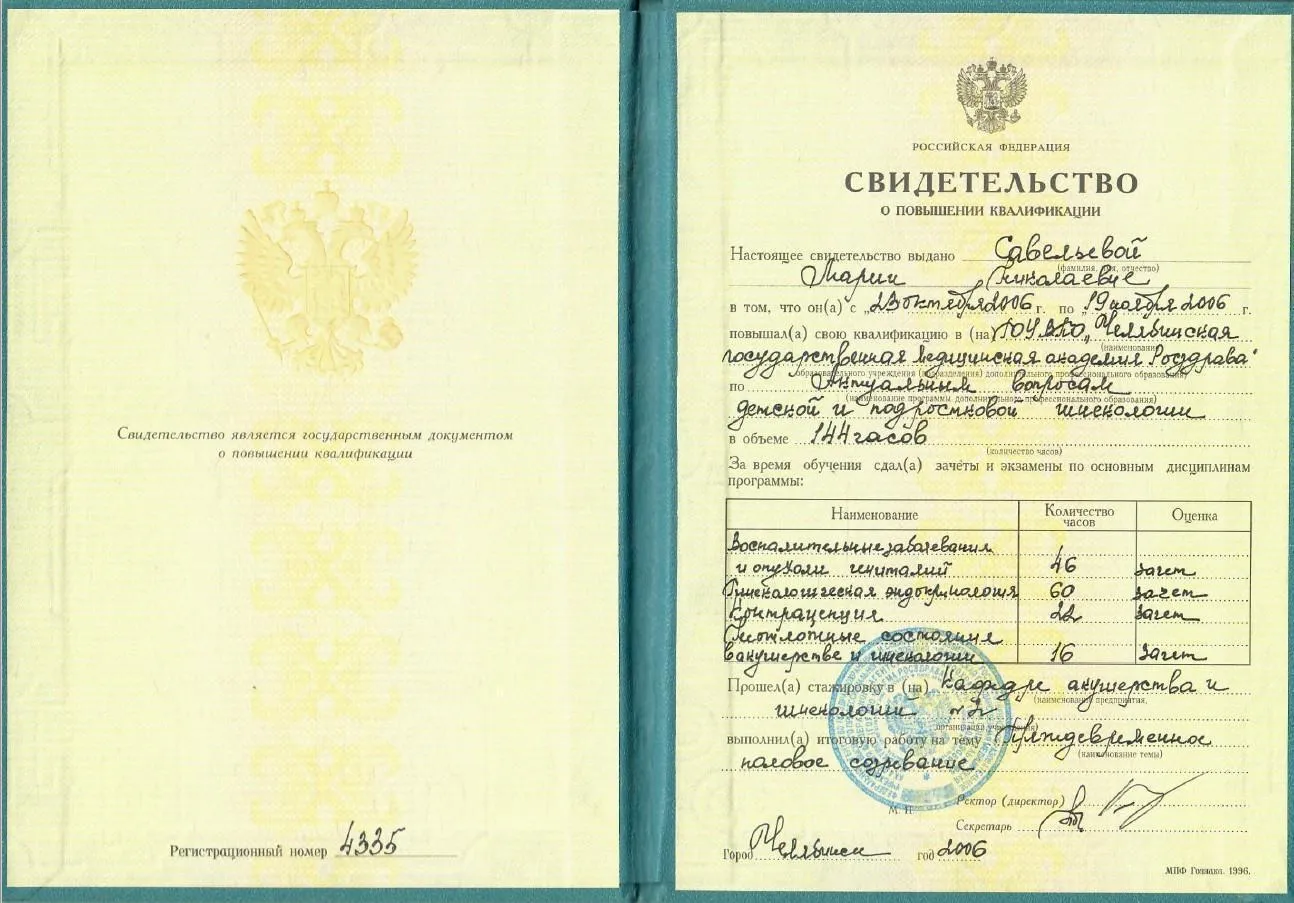 Свидетельство является государственным документом
о повышении квалификации
Регистрационный номер 4335
РОССИЙСКАЯ ФЕДЕРАЦИЯ
СВИДЕТЕЛЬСТВО
О ПОВЫШЕНИИ КВАЛИФИКАЦИИ
Настоящее свидетельство выдано Савельевой
(фамилия, имя, отчество)
Марии Николаевне
в том, что он(а) с „23 октября 2006 г. по „19 ноября 2006 г.
повышал(а) свою квалификацию в (на) ГОУ ВПО „Челябинская
(наименование
государственная медицинская академия Росздрава"
образовательного учреждения (подразделения) дополнительного профессионального образования)
по Актуальным вопросам
(наименование программы дополнительного профессионального образования)
детской и подростковой гинекологии
в объеме 144 часов
(количество часов)
За время обучения сдал(а) зачёты и экзамены по основным дисциплинам
программы:
Наименование Количество часов Оценка
Воспалительные заболевания
и опухоли гениталий 46 зачет
Гинекологическая эндокринология 60 зачет
Контрацепция 22 зачет
Неотложные состояния
в акушерстве и гинекологии 16 зачет
Прошел(а) стажировку в (на) Кафедре акушерства и
(наименование предприятия,
гинекологии №2
организации, учреждения)
выполнил(а) итоговую работу на тему Преждевременное
(наименование темы)
половое созревание
М. П.
Ректор (директор)
Секретарь
Город Челябинск год 2006
МПФ Гознака. 1996.